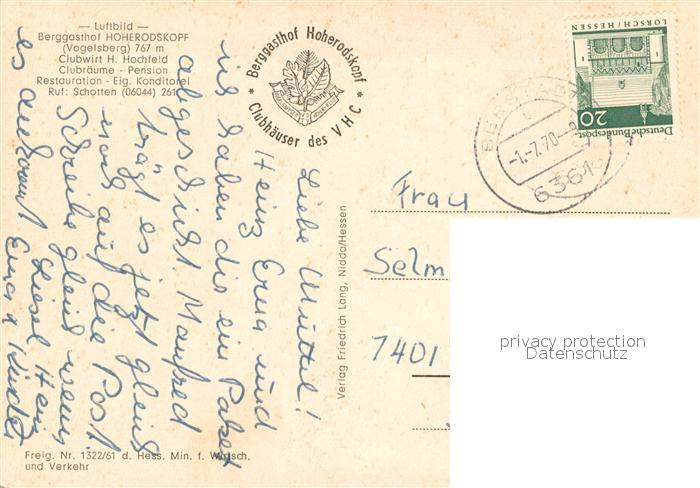 — Luftbild —
Berggasthof HOHERODSKOPF
(Vogelsberg) 767 m
Clubwirt H. Hochfeld
Clubräume - Pension
Restauration - Eig. Konditorei
Ruf: Schotten (06044) 261
* Berggasthof Hoherodskopf *
Clubhäuser des VHC
LORSCH/HESSEN
20
Deutsche Bundespost
-1.-7.70-
6361
Liebe Muttel!
Heinz Erna und
ich haben dir ein Paket
abgeschickt Manfred
trägt es jetzt gleich
noch auf die Post
Schreibe gleich wenn
es ankommt Liesel Heinz
Erna + Kinder
Verlag Friedrich Lang, Nidda/Hessen
Frau
Selm
7401
privacy protection
Datenschutz
Freig. Nr. 1322/61 d. Hess. Min. f. Wirtsch.
und Verkehr